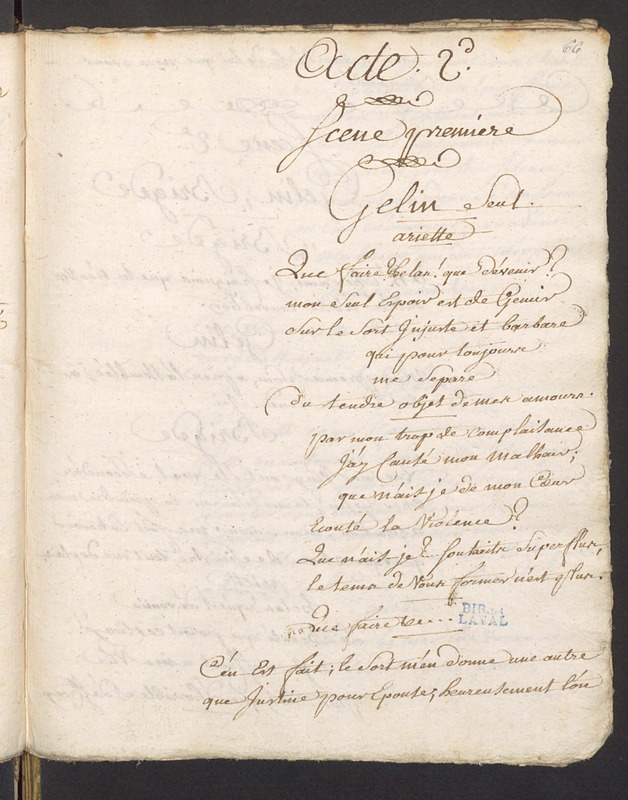 66
Acte. 2.d
Scene premiere
Gelin seul.
ariette
Que faire helas! que devenir?
mon seul Espoir est de Gemir
sur le sort Injuste et barbare
qui pour toujours
me separe
Du tendre objet de mes amours.
par mon trop de complaisance
J'ay Causé mon malheur;
que n'ais-je de mon Cœur
Ecouté la Violence?
Que n'ais-je? souhaits superflus,
le tems de Vous former n'est plus.
Que faire &c...
BIB. DE
LAVAL
C'en Est fait; le sort m'en donne une autre
que Justine pour Epouse, heureusement l'on